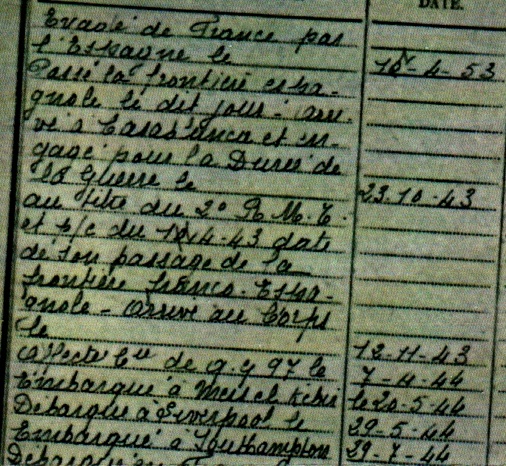 DATE.
Evadé de France par
l'Espagne le 18-4-53
Passé la frontière espa-
gnole le dit jour - arri-
vé à Casablanca et en-
gagé pour la Durée de
la Guerre le 23.10.43
au titre du 2° R.M.T.
et p/c du 18-4-43 date
de son passage de la
frontière franco-Espa-
gnole - Arrivé au Corps
le 12-11-43
Affecté de le 7-4-44
Embarqué à Mers el Kébir le 20-5-44
Débarqué à Liverpool le 29-5-44
Embarqué à Southampton 29-7-44
Débarqué en